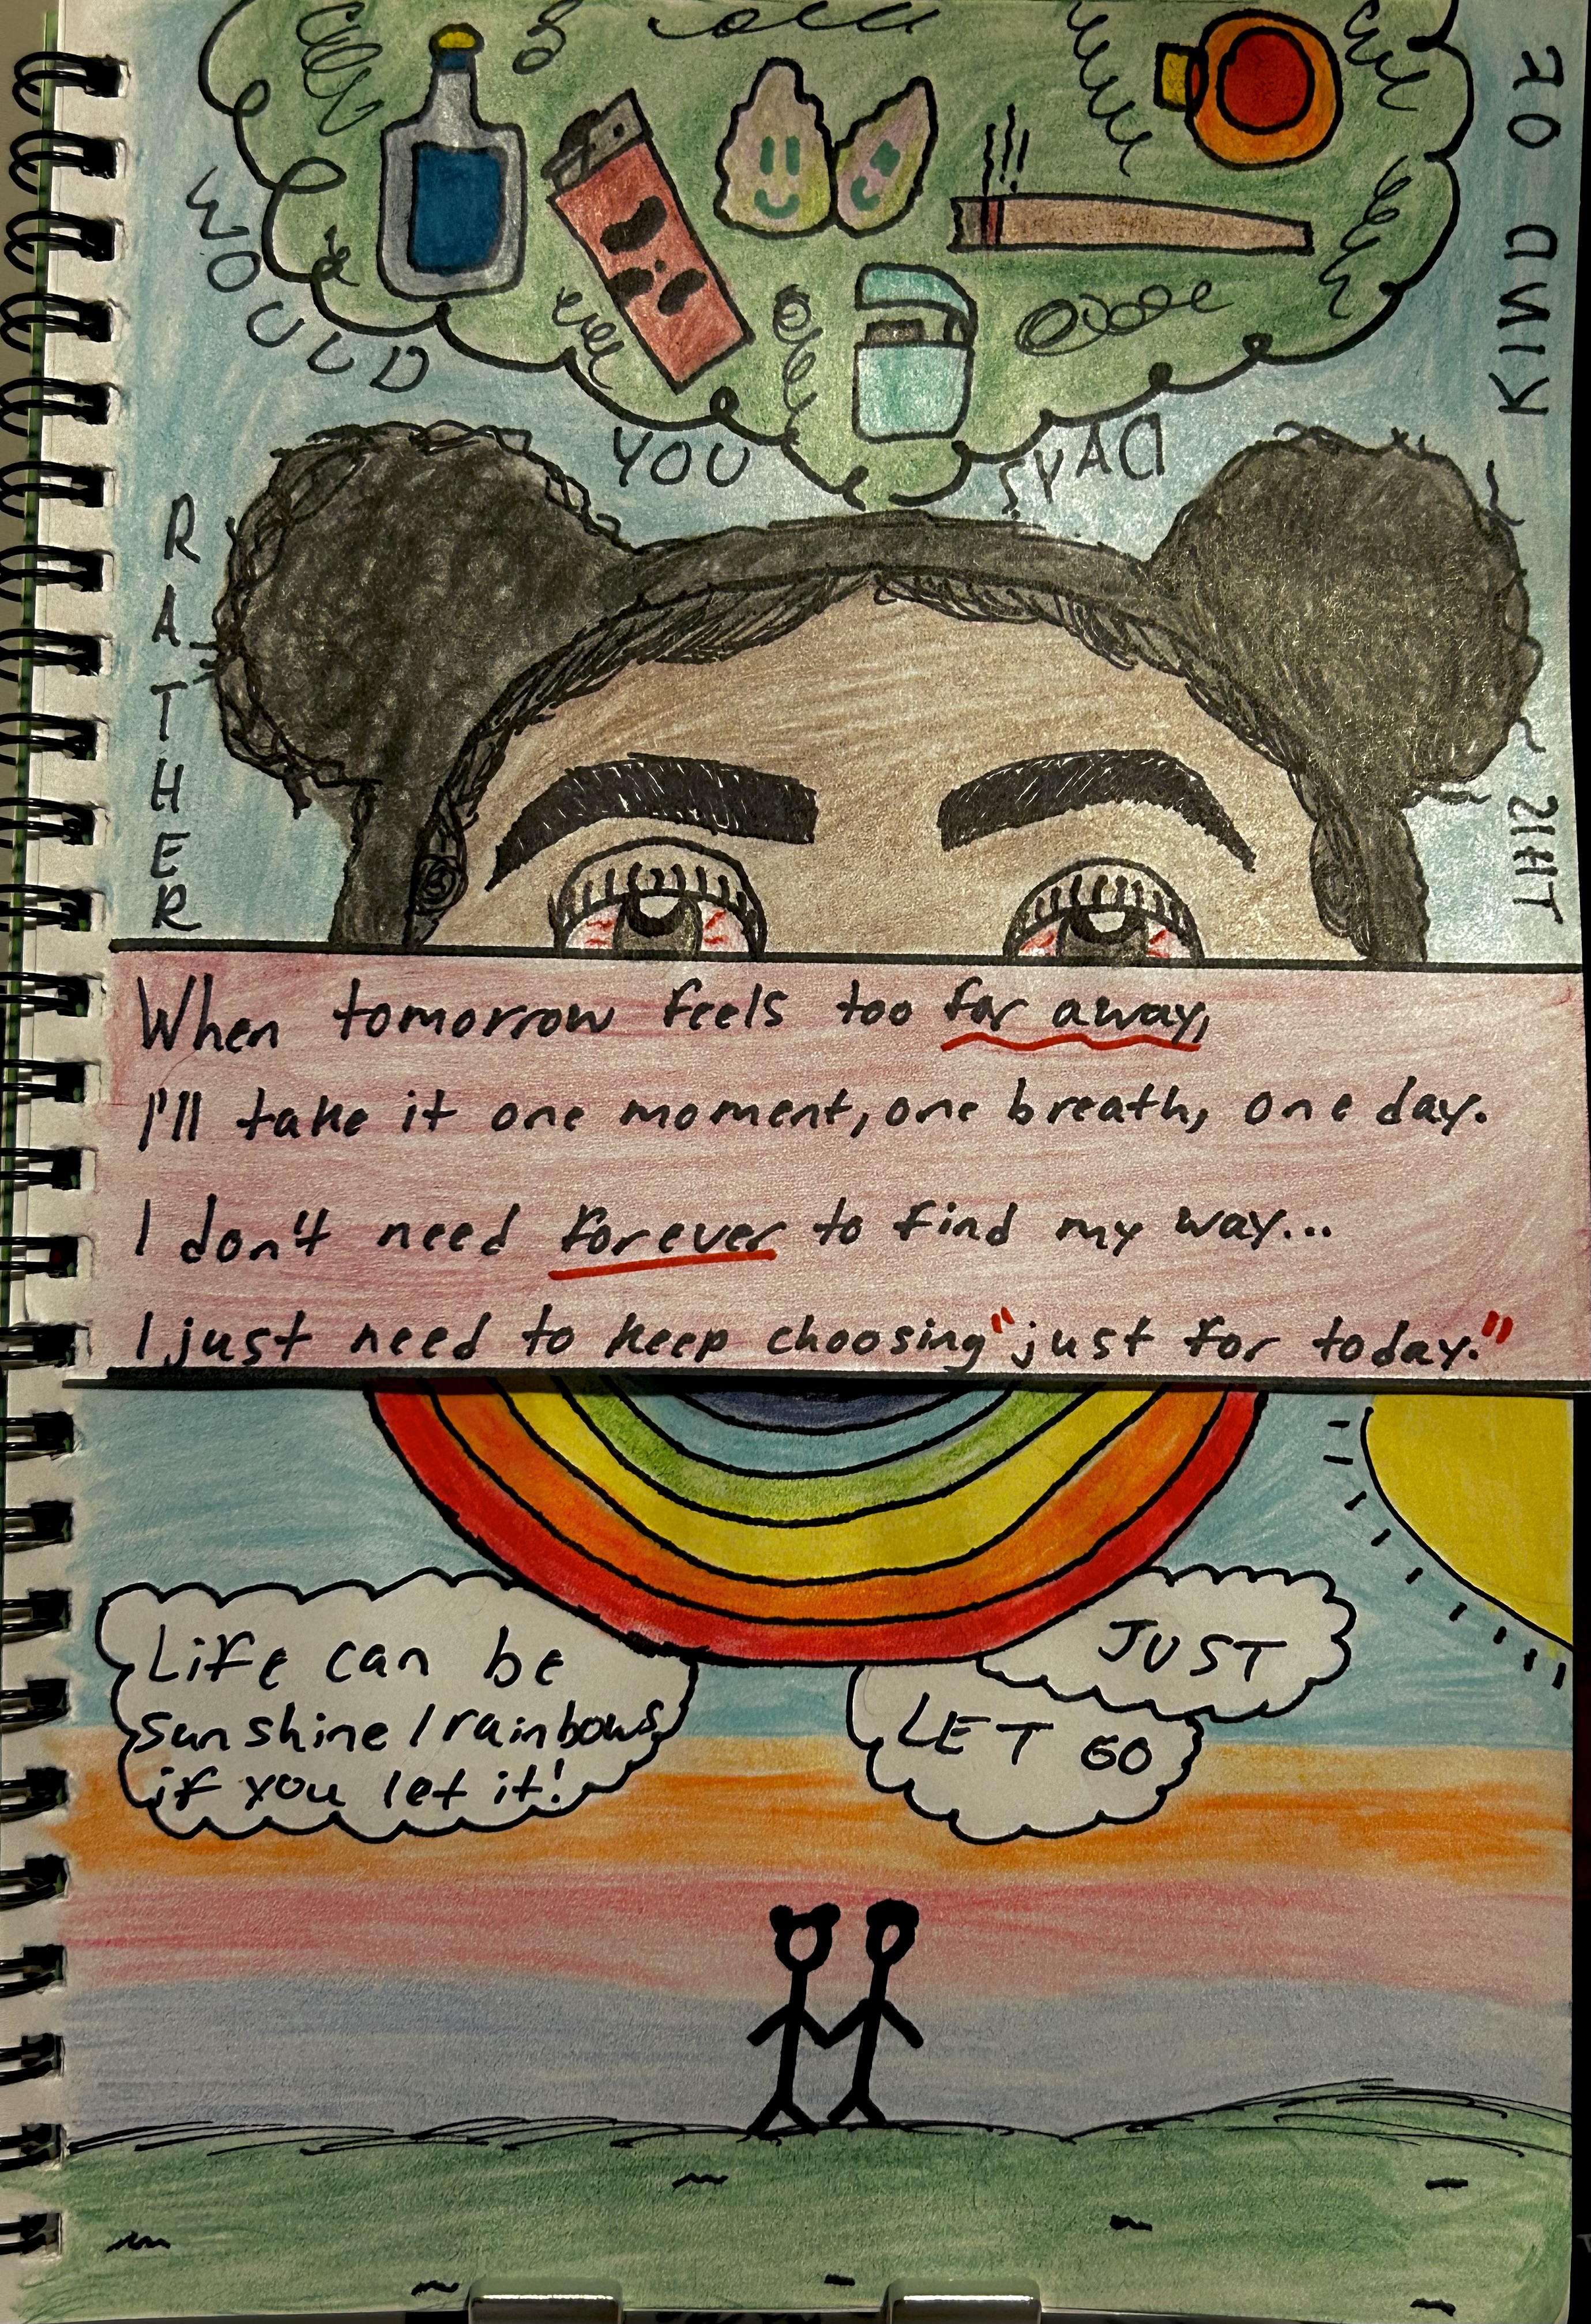 WOULD
YOU
RATHER
THIS
KIND OF
DAYS
When tomorrow feels too far away,
I'll take it one moment, one breath, one day.
I don't need forever to find my way...
I just need to keep choosing "just for today."
Life can be
sunshine / rainbows
if you let it!
JUST
LET GO